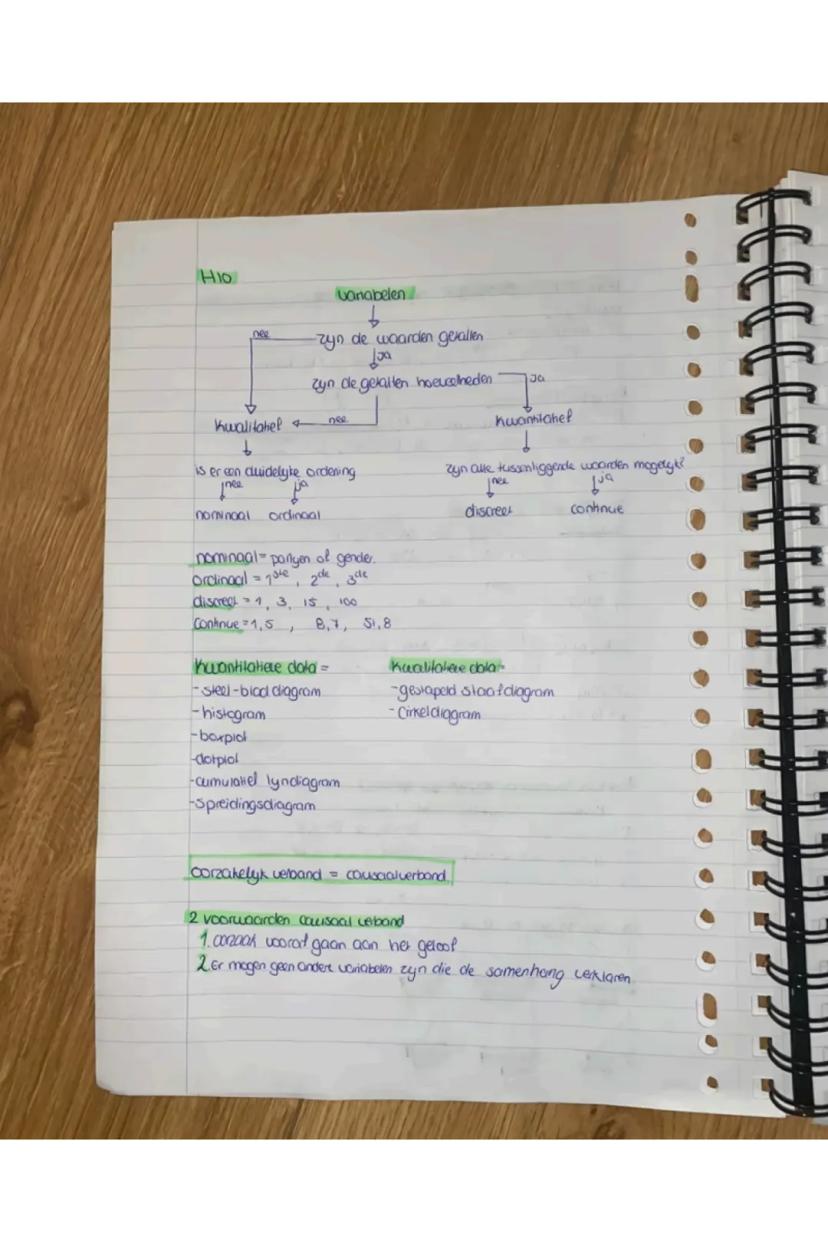 H10
variabelen
nee zijn de waarden getallen
ja
zijn de getallen hoeveelheden ja
kwalitatief nee kwantitatief
is er een duidelijke ordening zijn alle tussenliggende waarden mogelijk?
nee ja nee ja
nominaal ordinaal discreet continue
nominaal = partijen of gender.
ordinaal = 1ste, 2de, 3de
discreet = 1, 3, 15, 100
continue = 1,5 , 8,7, 51,8
kwantitatieve data = kwalitatieve data =
- steel-blad diagram - gestapeld staafdiagram
- histogram - cirkeldiagram
- boxplot
- dotplot
- cumulatief lijndiagram
- spreidingsdiagram
oorzakelijk verband = causaal verband.
2 voorwaarden causaal verband
1. oorzaak vooraf gaan aan het geloof
2. Er mogen geen andere variabelen zijn die de samenhang verklaren